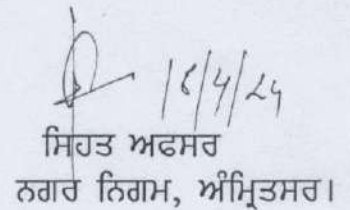 18/4/24
ਸਿਹਤ ਅਫਸਰ
ਨਗਰ ਨਿਗਮ, ਅੰਮ੍ਰਿਤਸਰ।